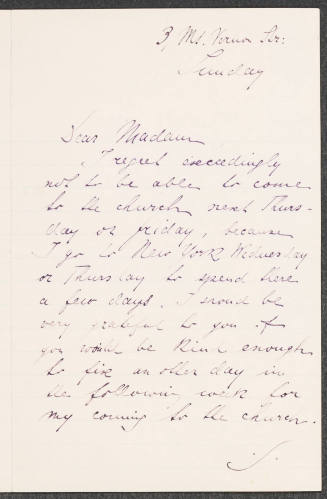 3, Mt. Vernon Ter:
Sunday
Dear Madam,
I regret exceedingly
not to be able to come
to the church next Thurs-
day or friday, because
I go to New York Wednesday
or Thursday to spend there
a few days. I shoud be
very grateful to you if
you would be kind enough
to fix an other day in
the following week for
my coming to the church.